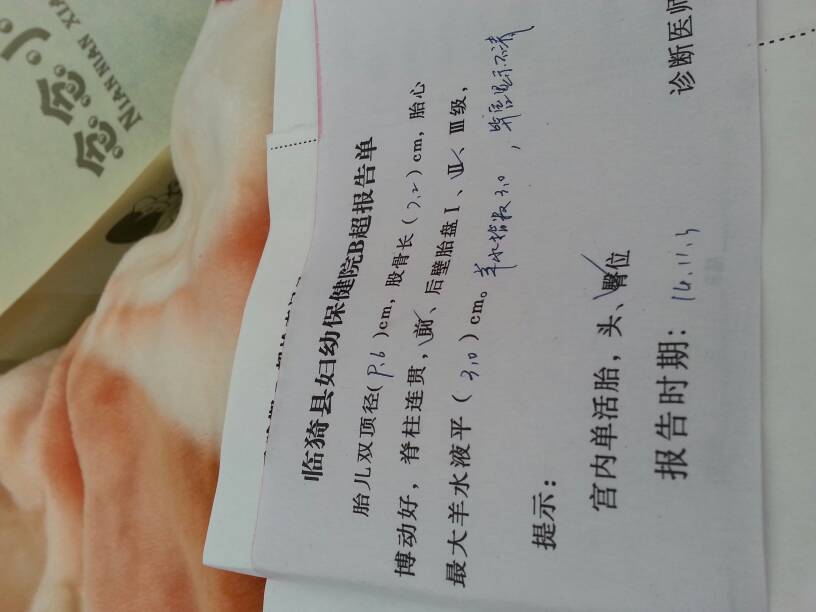 念念
NIAN NIAN XIA
临猗县妇幼保健院B超报告单
胎儿双顶径(8.6)cm，股骨长(7.2)cm，胎心
博动好，脊柱连贯，前、后壁胎盘Ⅰ、Ⅱ、Ⅲ级，
最大羊水液平(3.0)cm。羊水指数3.0，脐血显示不清
提示：
宫内单活胎，头、臀位
报告时期：14.11.3
诊断医师